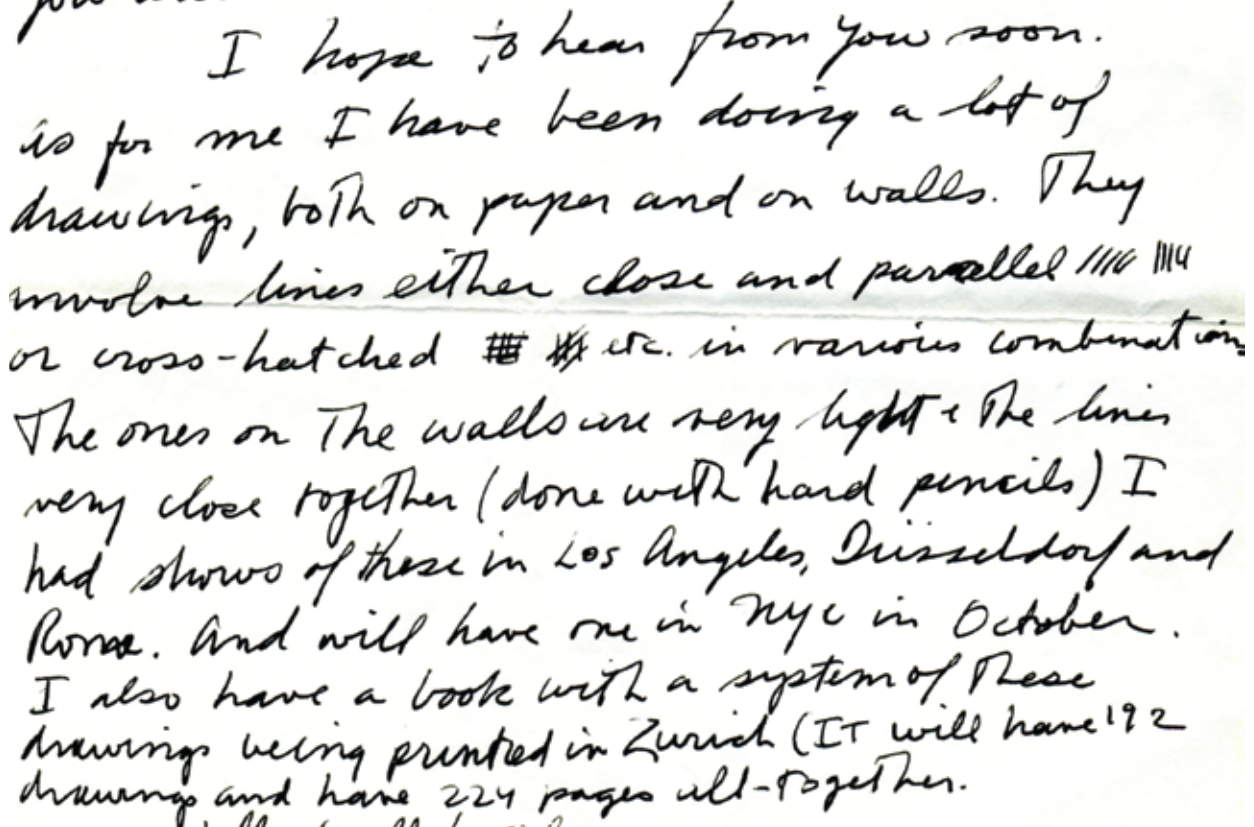 I hope to hear from you soon.
as for me I have been doing a lot of
drawings, both on paper and on walls. They
involve lines either close and parallel //// ||||
or cross-hatched etc. in various combinations
The ones on the walls are very light & the lines
very close together (done with hard pencils) I
had shows of these in Los Angeles, Düsseldorf and
Rome. And will have one in NYC in October.
I also have a book with a system of these
drawings being printed in Zurich (IT will have 192
drawings and have 224 pages all-together.